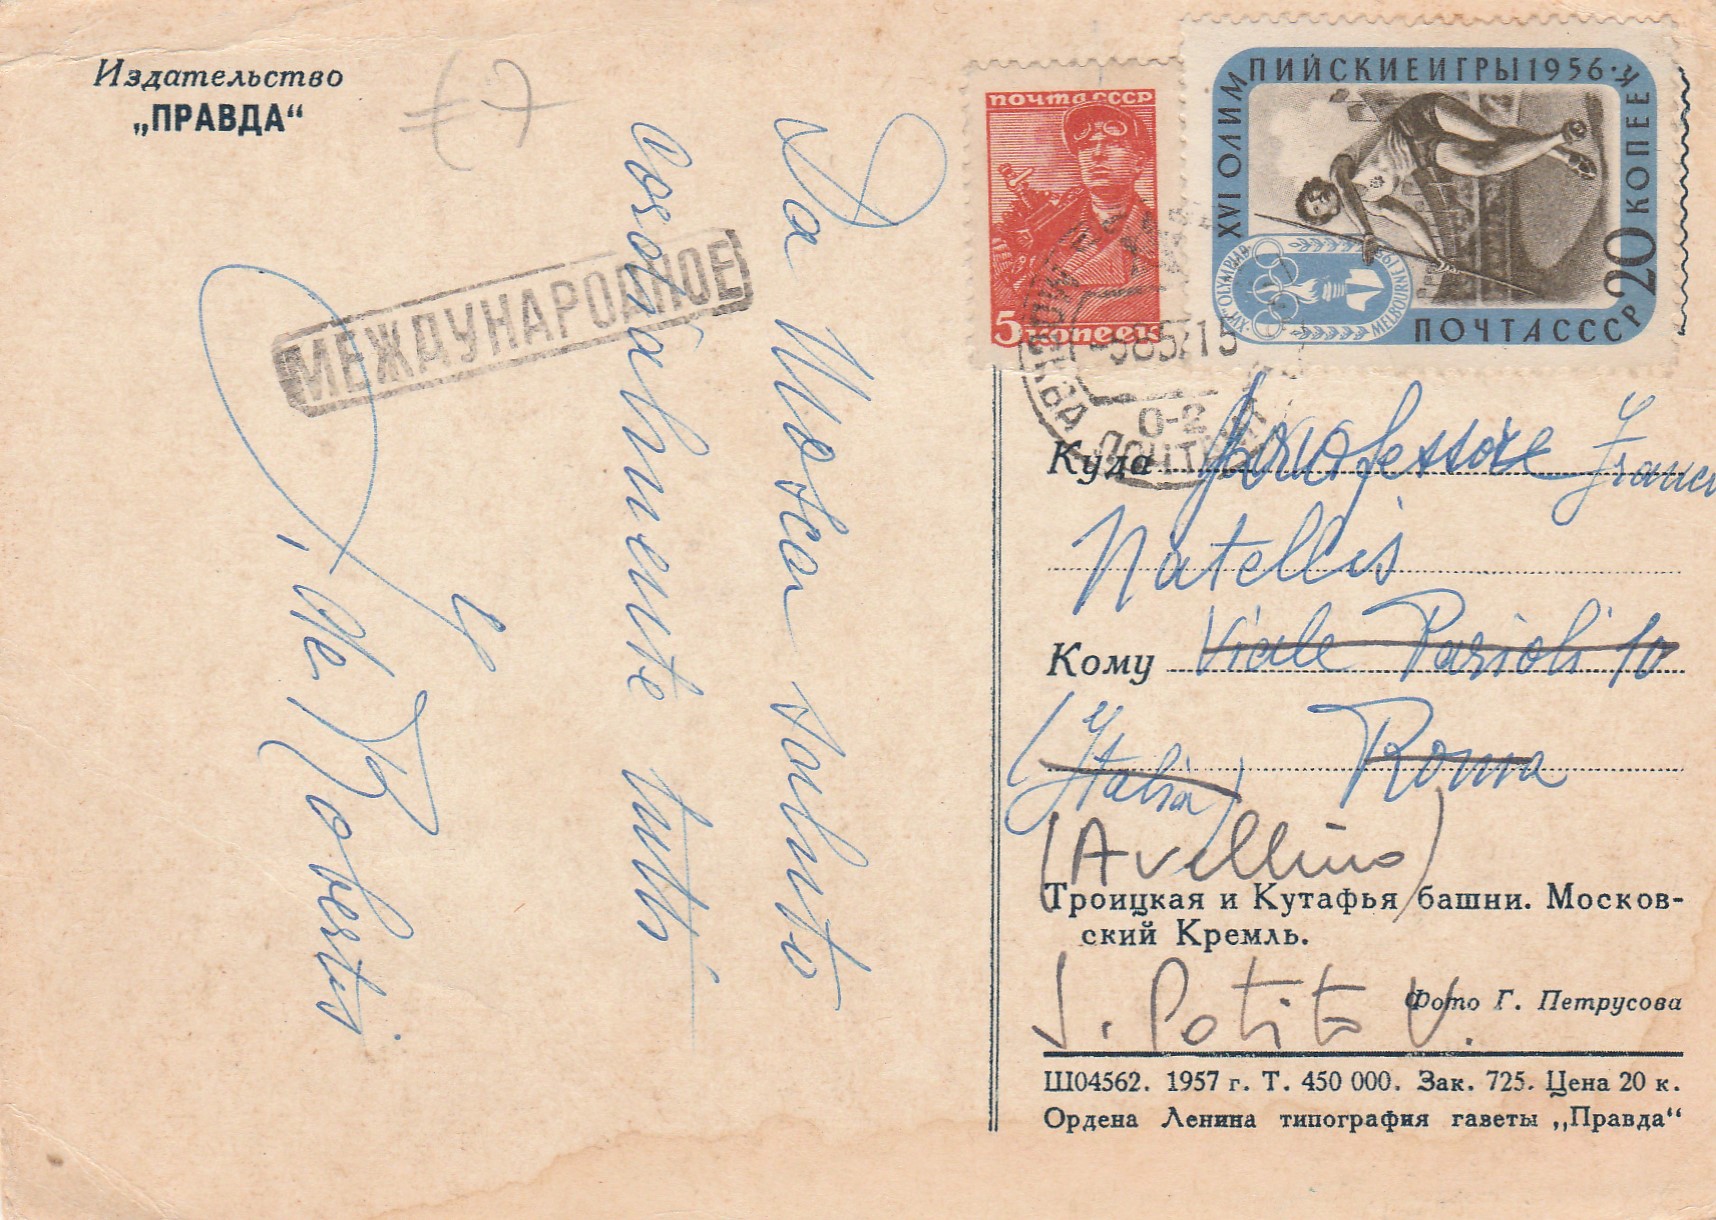 Издательство
„ПРАВДА“
МЕЖДУНАРОДНОЕ
Da Mosca saluto
tutti
De Robertis
ПОЧТА СССР
5 КОПЕЕК
XVI ОЛИМПИЙСКИЕ ИГРЫ 1956·
20 КОПЕЕК
XVI OLYMPIAD
MELBOURNE 1956
ПОЧТА СССР
МОСКВА
15
Куда Professore
Natellis
Кому Viale Parioli 10
(Italia) Roma
(Avellino)
Троицкая и Кутафья башни. Москов-
ский Кремль.
Фото Г. Петрусова
S. Potito U.
Ш04562. 1957 г. Т. 450 000. Зак. 725. Цена 20 к.
Ордена Ленина типография газеты „Правда“